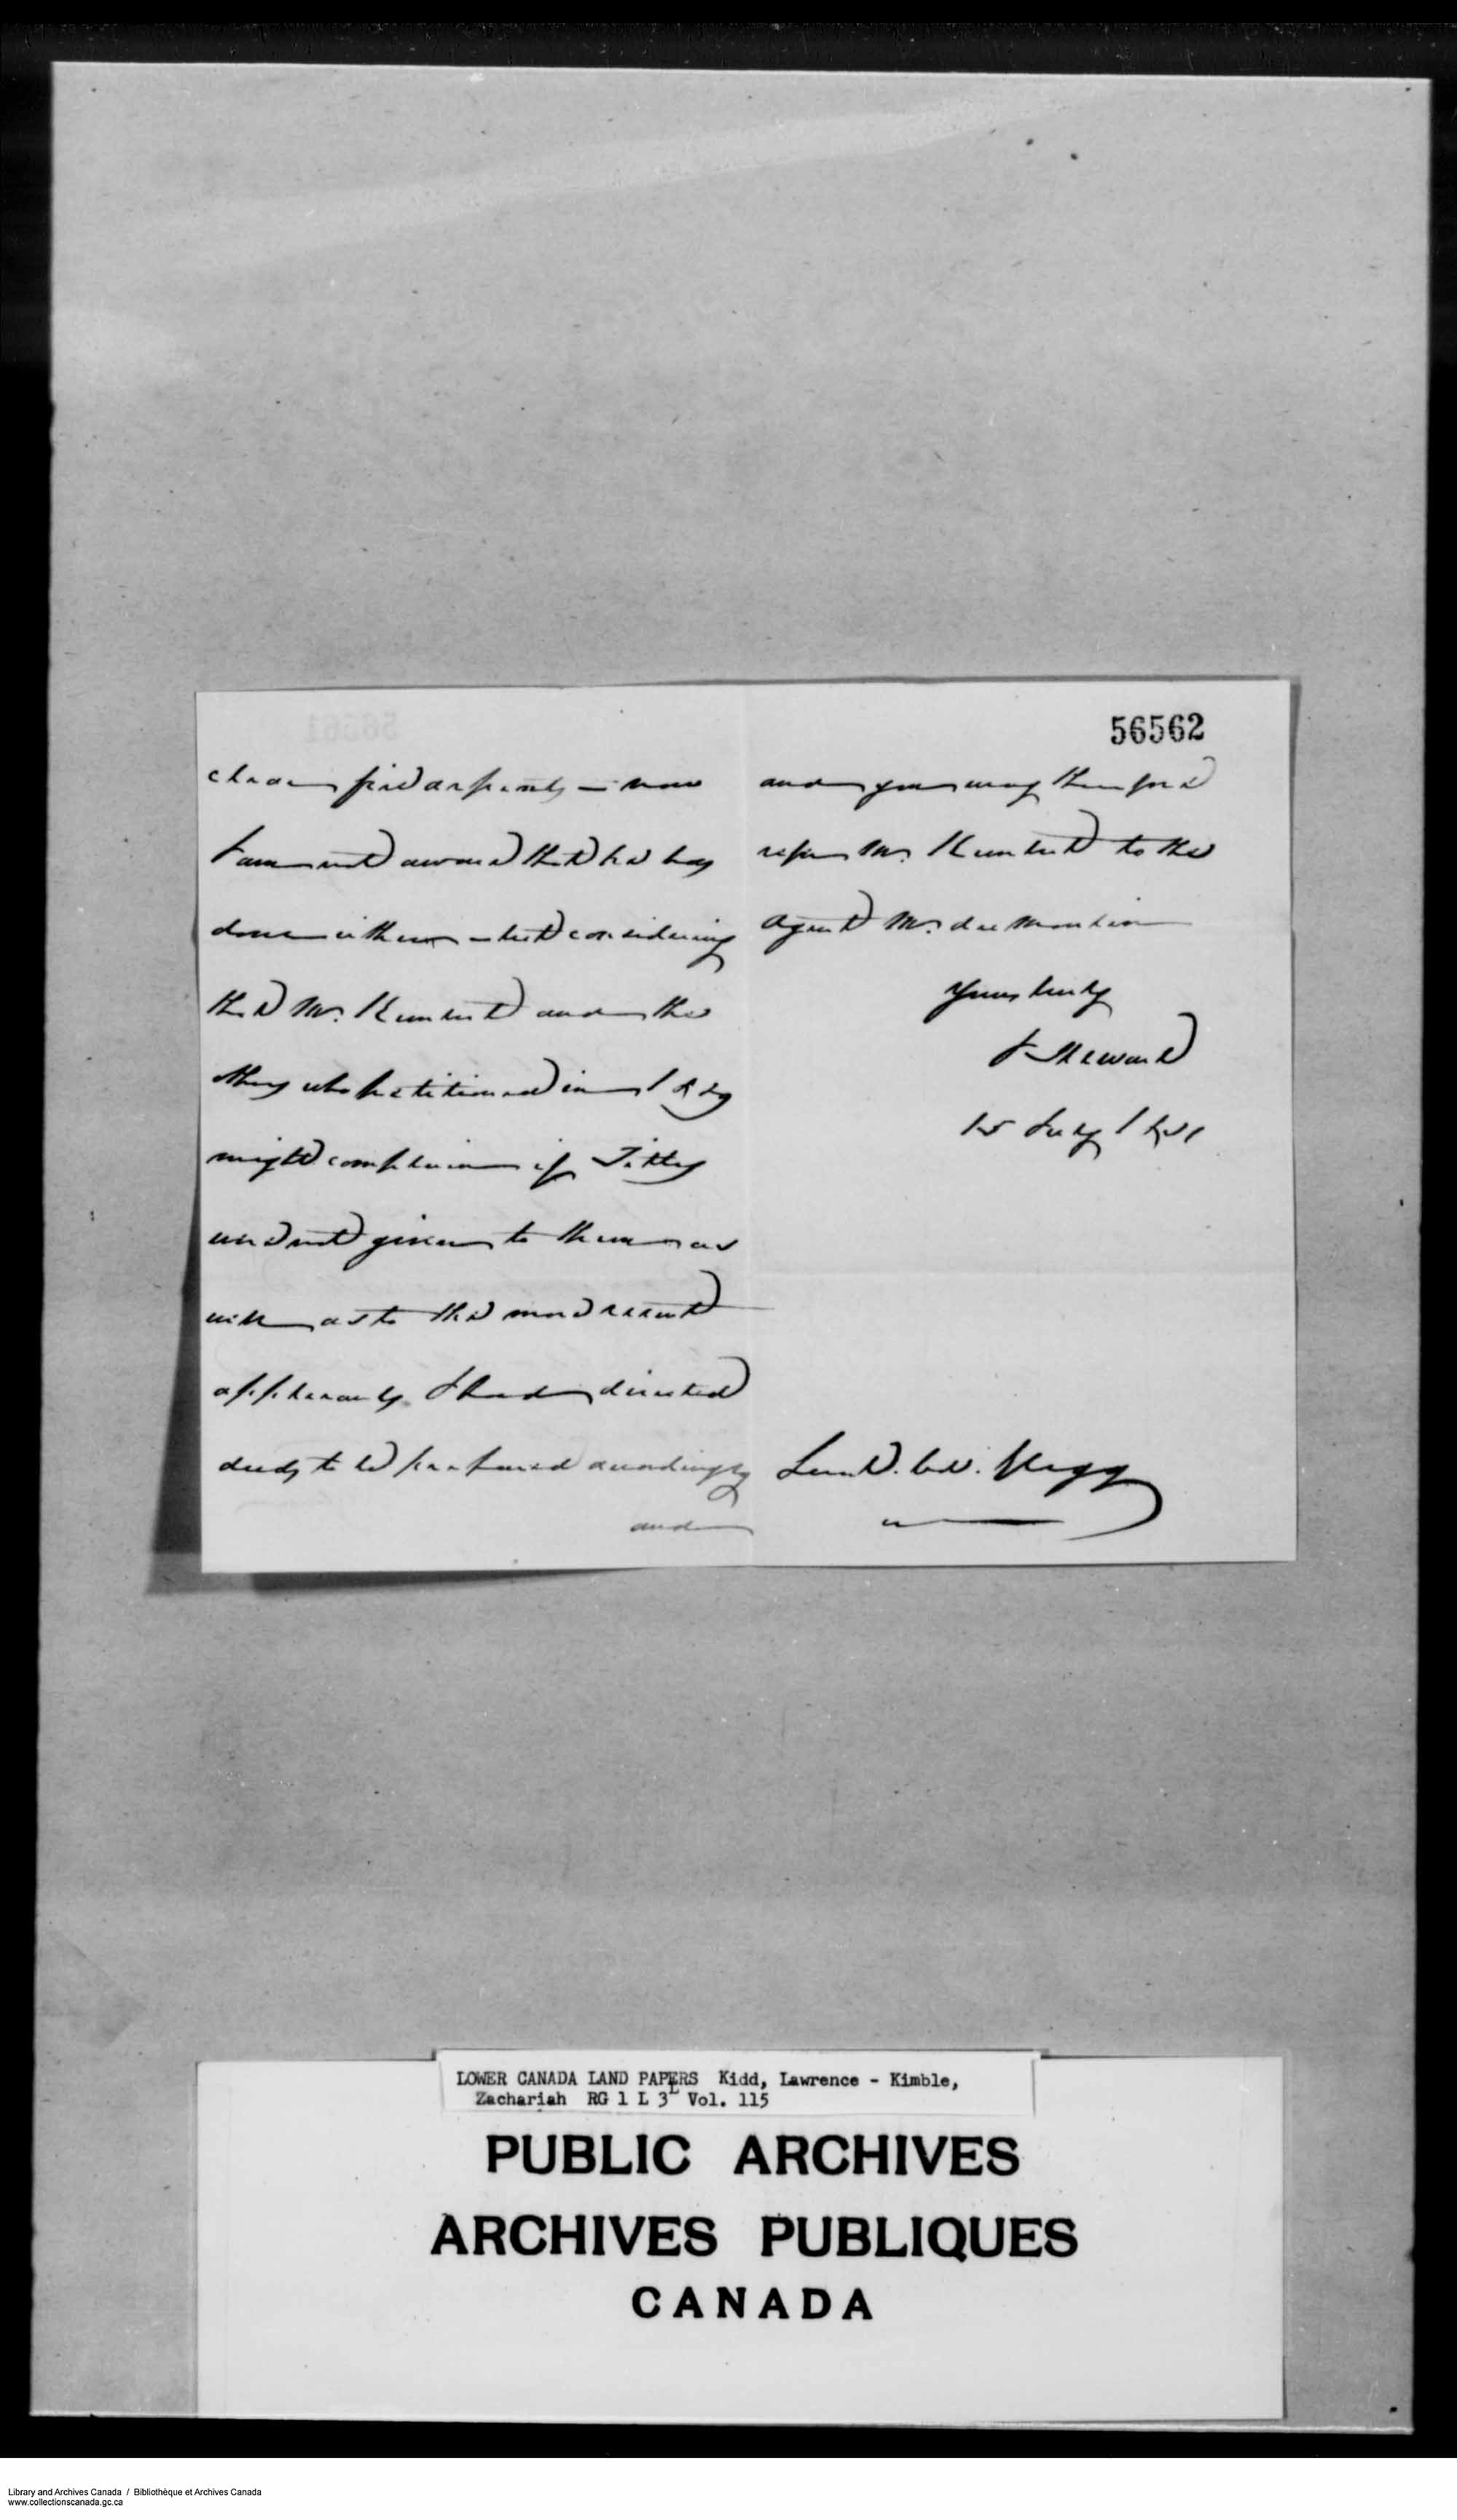 56562
clear five arpents – now
I am not aware that he has
done either – but considering
that Mr. Kimbert and the
others who petitioned in 1829
might complain if Titles
were not given to them as
well as to the more recent
applicants I had directed
deeds to be prepared accordingly
and
and you may therefore
refer Mr. Kimbert to the
Agent Mr. du Moulin
Yours truly
J Steward
15 July 1831
Lieut. Col.
LOWER CANADA LAND PAPERS Kidd, Lawrence - Kimble,
Zachariah RG 1 L 3 L Vol. 115
PUBLIC ARCHIVES
ARCHIVES PUBLIQUES
CANADA
Library and Archives Canada / Bibliothèque et Archives Canada
www.collectionscanada.gc.ca